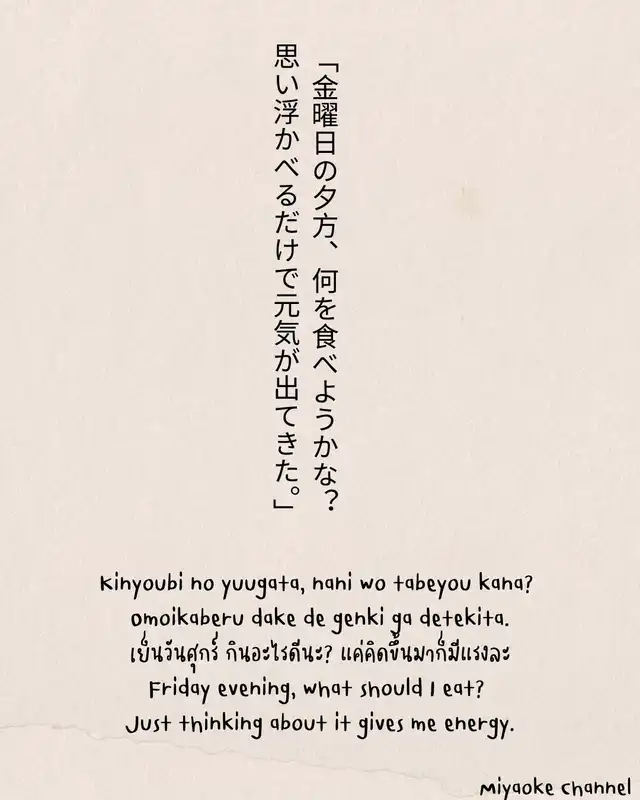 「金曜日の夕方、何を食べようかな？
思い浮かべるだけで元気が出てきた。」
Kinyoubi no yuugata, nani wo tabeyou kana?
omoikaberu dake de genki ga detekita.
เย็นวันศุกร์ กินอะไรดีนะ? แค่คิดขึ้นมาก็มีแรงละ
Friday evening, what should I eat?
Just thinking about it gives me energy.
Miyaoke channel